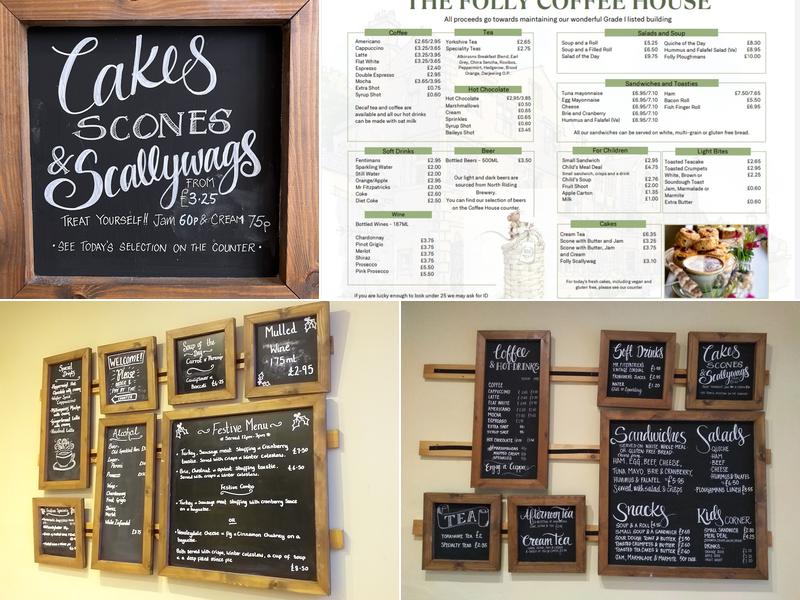 Cakes
SCONES
& Scallywags
FROM
£3.25
TREAT YOURSELF!! Jam 60p & CREAM 75p
• SEE TODAY'S SELECTION ON THE COUNTER •
THE FOLLY COFFEE HOUSE
All proceeds go towards maintaining our wonderful Grade I listed building
Coffee
Americano £2.65/2.95
Cappuccino £3.25/3.65
Latte £3.25/3.65
Flat White £3.25/3.65
Espresso £2.40
Double Espresso £2.95
Mocha £3.65/3.95
Extra Shot £0.75
Syrup Shot £0.60
Decaf tea and coffee are
available and all our hot drinks
can be made with oat milk
Tea
Yorkshire Tea £2.65
Speciality Teas £2.75
Atkinsons Breakfast Blend, Earl
Grey, China Sencha, Rooibos,
Peppermint, Hedgerow, Blood
Orange, Darjeeling O.P.
Hot Chocolate
Hot Chocolate £2.95/3.85
Marshmallows £0.50
Cream £0.65
Sprinkles £0.65
Syrup Shot £0.60
Baileys Shot £3.45
Soft Drinks
Fentimans £2.95
Sparkling Water £2.00
Still Water £2.00
Orange/Apple £2.95
Mr Fitzpatricks £2.00
Coke £2.60
Diet Coke £2.50
Beer
Bottled Beers - 500ML £3.50
Our light and dark beers are
sourced from North Riding
Brewery.
You can find our selection of beers
on the Coffee House counter.
Wine
Bottled Wines - 187ML
Chardonnay £3.75
Pinot Grigio £3.75
Merlot £3.75
Shiraz £3.75
Prosecco £5.50
Pink Prosecco £5.50
If you are lucky enough to look under 25 we may ask for ID
Salads and Soup
Soup and a Roll £5.25
Soup and a Filled Roll £6.50
Salad of the Day £9.75
Quiche of the Day £8.30
Hummus and Falafel Salad (Ve) £8.95
Folly Ploughmans £10.00
Sandwiches and Toasties
Tuna mayonnaise £6.95/7.10
Egg Mayonnaise £6.95/7.10
Cheese £6.95/7.10
Brie and Cranberry £6.95/7.10
Hummus and Falafel (Ve) £6.95/7.10
Ham £7.50/7.65
Bacon Roll £5.50
Fish Finger Roll £6.95
All our sandwiches can be served on white, multi-grain or gluten free bread.
For Children
Small Sandwich £2.95
Child's Meal Deal £4.75
Small sandwich, crisps and a drink
Child's Soup £2.76
Fruit Shoot £2.00
Apple Carton £1.35
Milk £1.00
Light Bites
Toasted Teacake £2.65
Toasted Crumpets £2.95
White, Brown or £2.25
Sourdough Toast
Jam, Marmalade or £0.60
Marmite
Extra Butter £0.60
Cakes
Cream Tea £6.35
Scone with Butter, and Jam £3.25
Scone with Butter, Jam £3.75
and Cream
Folly Scallywag £3.10
For today's fresh cakes, including vegan and
gluten free, please see our counter
Special
Drinks
WELCOME!
Please
ORDER &
PAY AT THE
COUNTER
Soup of the
Day
Carrot & Parsnip
Cauliflower &
Broccoli
£4.25
Mulled
Wine
175ml
£2.95
Alcohol
Beer
Peroni
Prosecco
Wine
Chardonnay
Pinot Grigio
Shiraz
Merlot
White Zinfandel
£3.75
Festive Menu
Served 12pm-3pm
• Turkey, Sausage meat stuffing & Cranberry £7.50
toastie. Served with crisps & winter coleslaw.
• Brie, Chestnut & sprout stuffing toastie. £6.50
Served with crisps & winter coleslaw.
Festive Combo
• Turkey, Sausage meat stuffing with cranberry sauce
on a baguette.
OR
• Wensleydale Cheese & Fig & Cinnamon Chutney on a
baguette.
Both served with crisps, winter coleslaw, a cup of soup
& a deep filled mince pie
£8.50
Coffee
& HOT DRINKS
COFFEE
CAPPUCCINO
LATTE
FLAT WHITE
AMERICANO
MOCHA
ESPRESSO
EXTRA SHOT
SYRUP SHOT
HOT CHOCOLATE
Enjoy a Cuppa
Soft Drinks
MR. FITZPATRICKS
VINTAGE CORDIAL
WATER
STILL or Sparkling
Cakes
SCONES
& Scallywags
TEA
YORKSHIRE TEA £2
SPECIALITY TEAS £2.35
Afternoon Tea
Cream Tea
Sandwiches
SERVED ON WHITE, WHOLE MEAL
OR GLUTEN FREE BREAD
HAM, EGG, BEEF, CHEESE,
TUNA MAYO, BRIE & CRANBERRY,
HUMMUS & FALAFEL
Served with salad & crisps
Salads
QUICHE
HAM
BEEF
CHEESE
HUMMUS & FALAFEL
PLOUGHMANS LUNCH
Snacks
SOUP & A ROLL
SMALL SOUP & A SANDWICH
SOUR DOUGH TOAST & BUTTER
TOASTED CRUMPETS & BUTTER
TOASTED TEA CAKES & BUTTER
JAM, MARMALADE & MARMITE 50p EACH
Kids CORNER
SMALL SANDWICH
MEAL DEAL
DRINKS